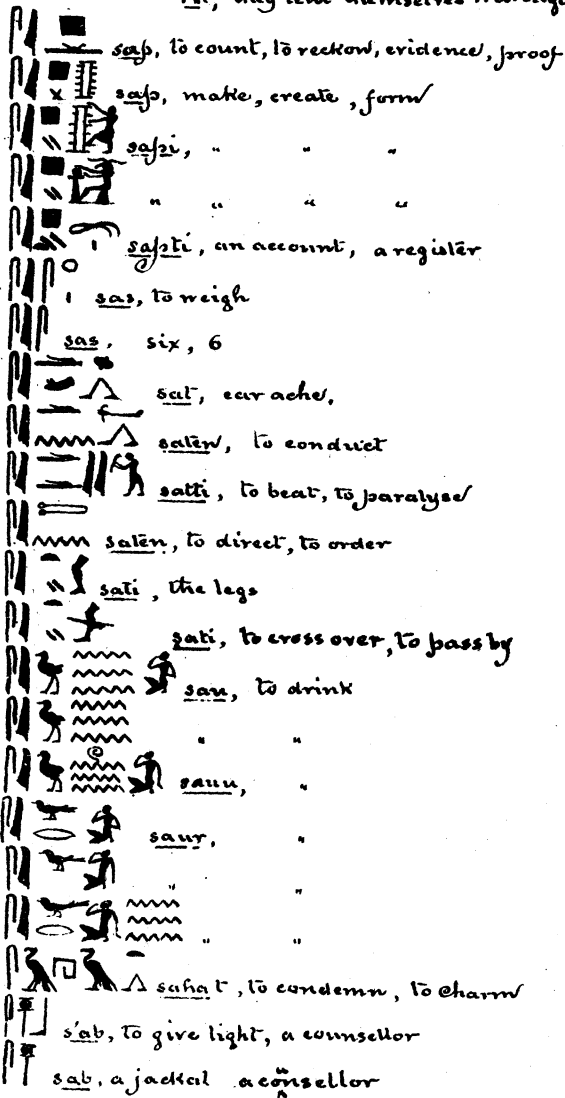 may lend themselves
sap, to count, to reckon, evidence, proof
sap, make, create, form
sapi, " " "
" " " "
sapti, an account, a register
sas, to weigh
sas, six, 6
sat, ear ache.
saten, to conduct
satti, to beat, to paralyse
saten, to direct, to order
sati, the legs
sati, to cross over, to pass by
sau, to drink
" "
sauu, "
saur, "
" "
" "
sahat, to condemn, to charm
s'ab, to give light, a counsellor
sab, a jackal a consellor